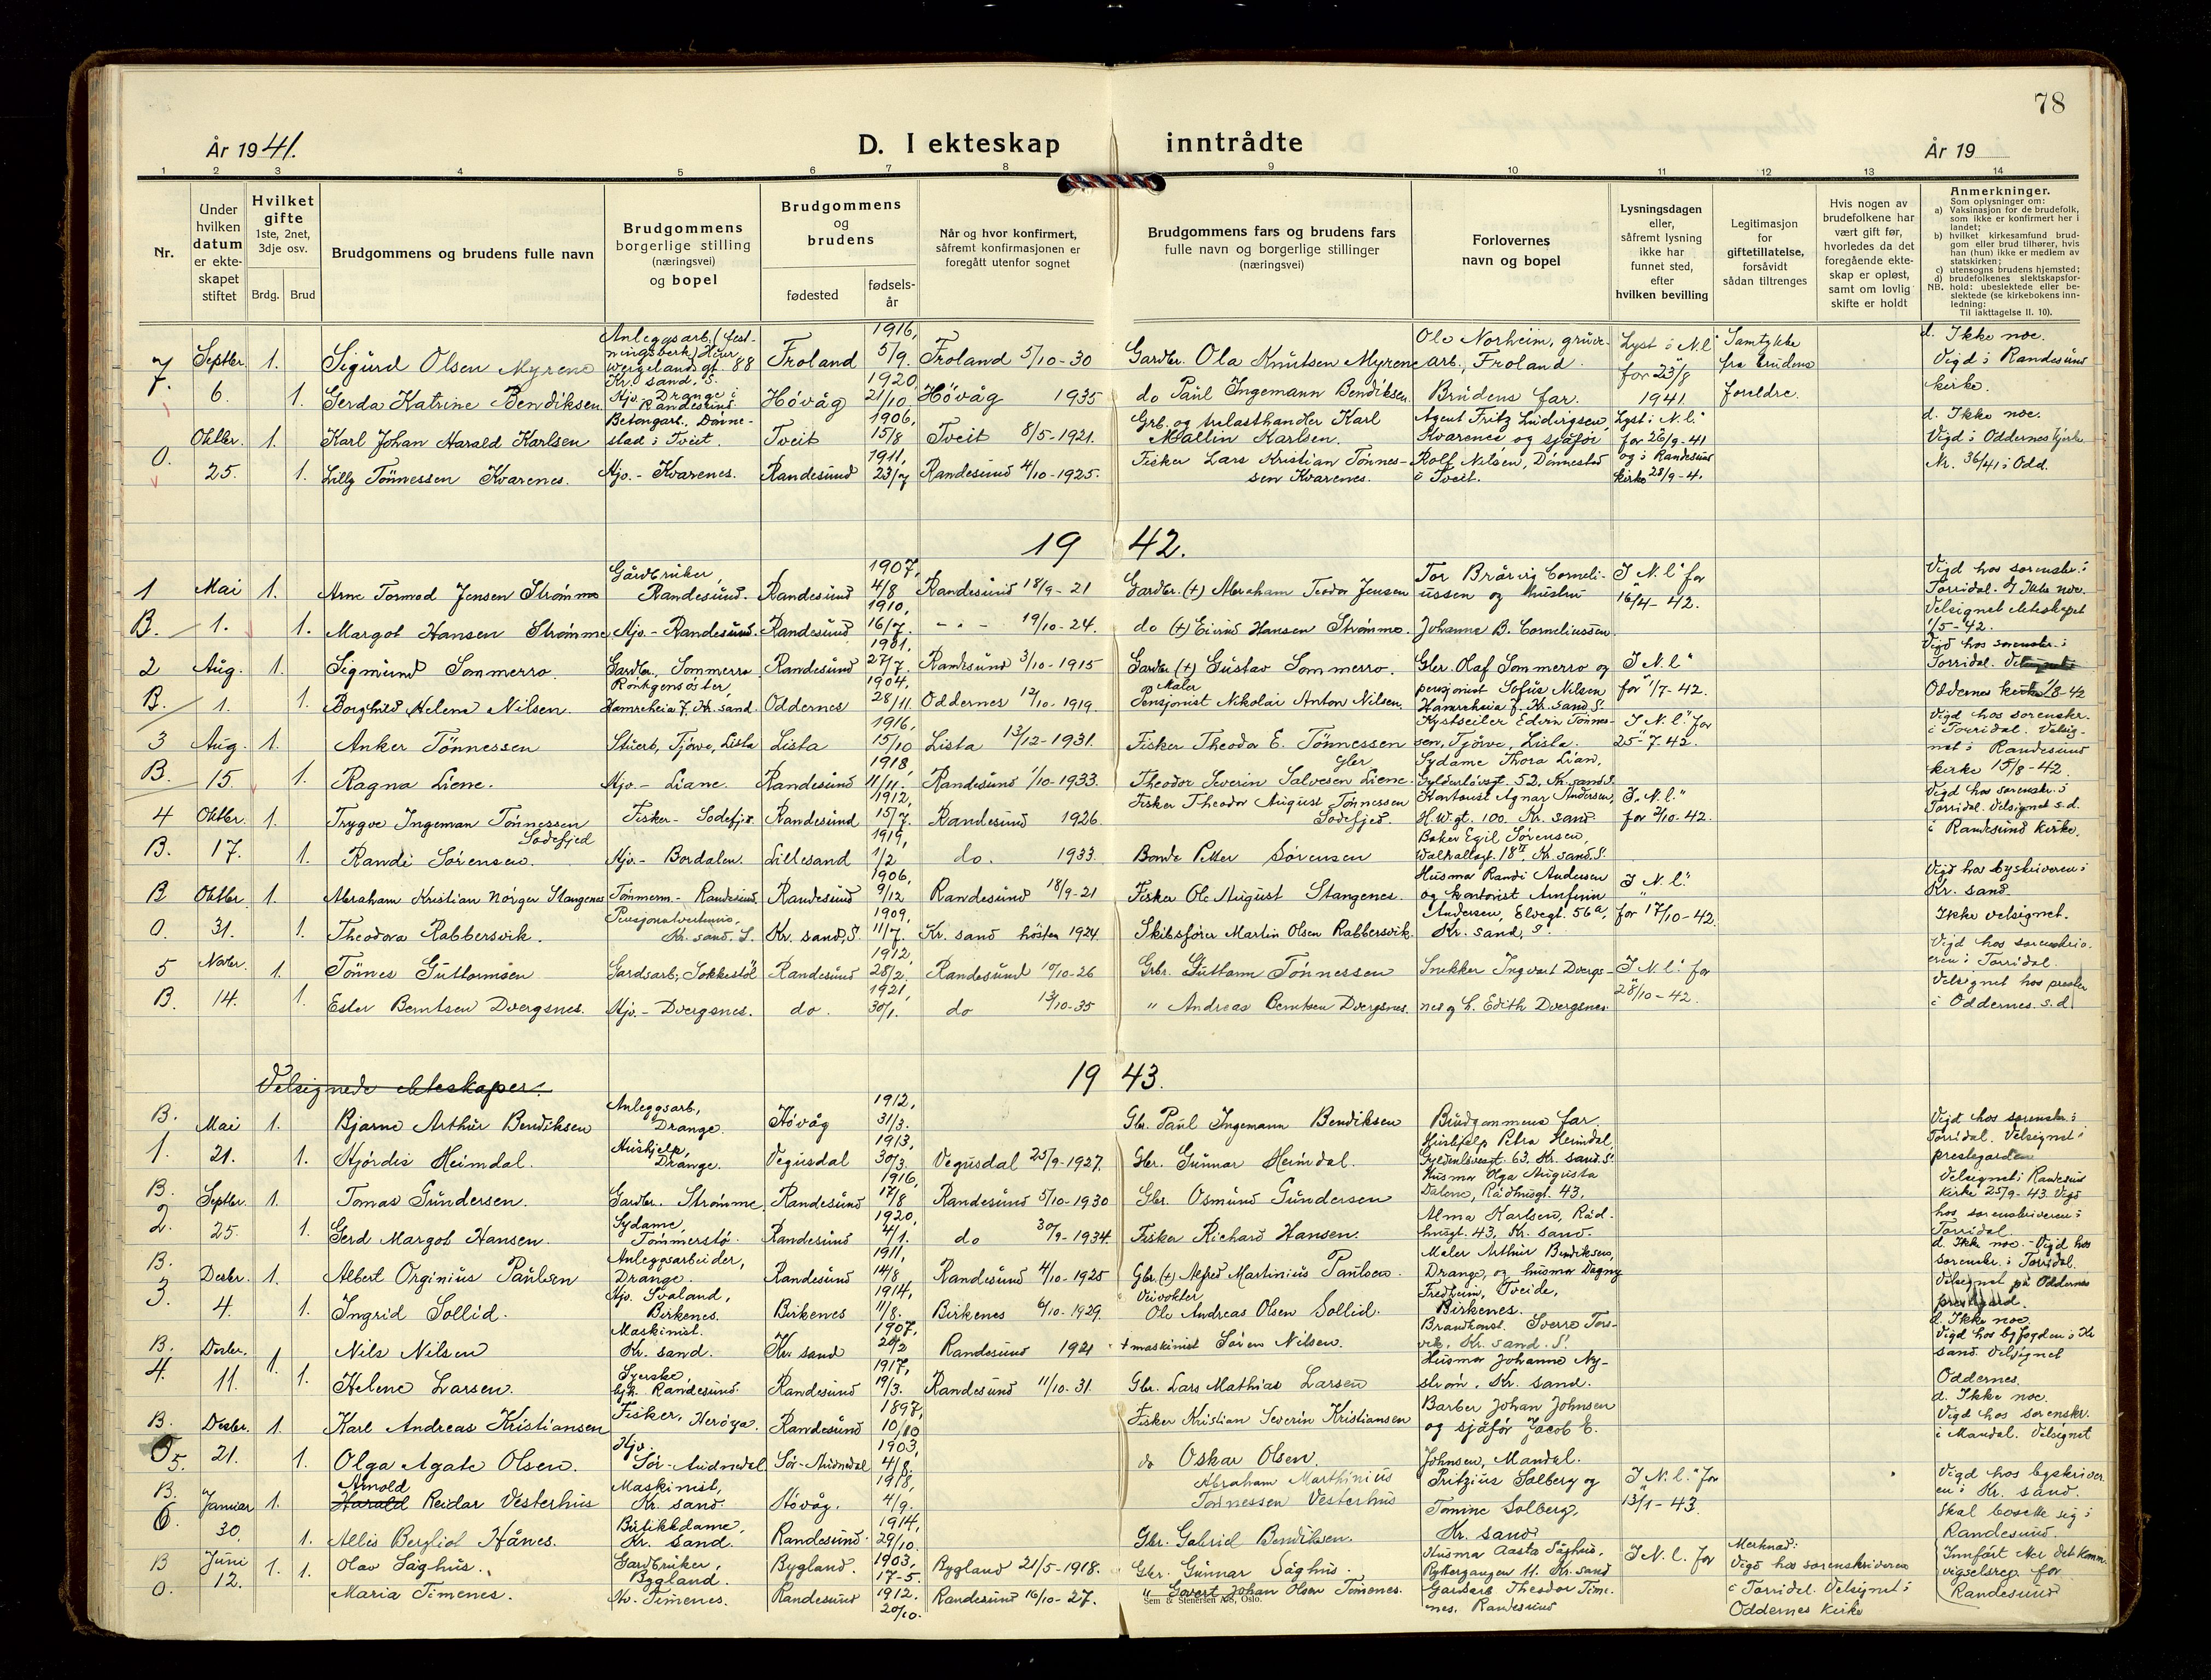 78
År 1941.
D. I ekteskap inntrådte
År 19
1 2 3 4 5 6 7 8 9 10 11 12 13 14
Nr.
Under hvilken datum er ekte-skapet stiftet
Hvilket gifte 1ste, 2net, 3dje osv.
Brdg. Brud
Brudgommens og brudens fulle navn
Brudgommens borgerlige stilling (næringsvei) og bopel
Brudgommens og brudens
fødested
fødsels-år
Når og hvor konfirmert, såfremt konfirmasjonen er foregått utenfor sognet
Brudgommens fars og brudens fars fulle navn og borgerlige stillinger (næringsvei)
Forlovernes navn og bopel
Lysningsdagen eller, såfremt lysning ikke har funnet sted, efter hvilken bevilling
Legitimasjon for giftetillatelse, forsåvidt sådan tiltrenges
Hvis nogen av brudefolkene har vært gift før, hvorledes da det foregående ekte-skap er opløst, samt om lovlig skifte er holdt
Anmerkninger.
Som oplysninger om:
a) Vaksinasjon for de brudefolk, som ikke er konfirmert her i landet;
b) hvilket kirkesamfund brud-gom eller brud tilhører, hvis han (hun) ikke er medlem av statskirken;
c) utensogns brudens hjemsted;
d) brudefolkenes slektskapsfor-hold: ubeslektede eller be-slektede (se kirkebokens inn-ledning:
NB.
Til iakttagelse II. 10).
7. Septbr. 1. Sigurd Olsen Myrene Kr. sand, S. Froland 1916, 5/9. Froland 5/10-30 Gardbr. Ola Knutsen Myrene Ole Norheim, gruve-arb., Froland. Lyst i N.l. for 23/8 1941. Samtykke fra brudens foreldre. d. Ikke noe. Vigd i Randesund kirke.
6. 1. Gerda Katrine Bendiksen Hjv. Drange i Randesund. Høvåg 1920 21/10 Høvåg 1935 do Paul Ingemann Bendiksen Brudens far.
O. Oktbr. 1. Karl Johan Harald Karlsen Betongarb., Dønne-stad i Tveit. Tveit 1906, 15/8 Tveit 8/5-1921. Grb. og trelasthandler Karl Mallin Karlsen. Agent Fritz Ludvigsen, Kvarenes og sjåfør Lyst i N.l. for 26/9-41 og i Randesund kirke 28/9-4. d. Ikke noe. Vigd i Oddernes kirke Nr. 36/41 i Odd.
25. 1. Lilly Tønnessen Kvarenes. Hjv. - Kvarenes. Randesund 1911, 23/7 Randesund 4/10-1925. Fisker Lars Kristian Tønnes-sen Kvarenes. Rolf Nilsen, Dønnestad i Tveit.
19 42.
1 Mai 1. Arne Tormod Jensen Strømme Gårdbruker, Randesund. Randesund 1907, 4/8 Randesund 18/9-21 Gardbr. (+) Abraham Teodor Jensen Tor Brårvig Corneli-ussen og hustru I "N.l." for 16/4-42. Vigd hos sorenskr. i Torridal. d/ Ikke noe. Velsignet ekteskapet 1/5-42.
B. 1. 1. Margot Hansen Strømme Hjv. - Randesund. Randesund 1910, 16/7. - " - 19/10-24. do (+) Eivind Hansen Strømme. Johanne B. Corneliussen.
2 Aug. 1. Sigmund Sommerro. Gardbr. Sommerro Randesund 1901, 27/7 Randesund 3/10-1915 Gardbr (+) Gustav Sommerro. Gbr. Olaf Sommerro og I "N.l." for 1/7-42. Vigd hos sorenskr. i Torridal.
B. 1. 1. Borghild Helene Nilsen. Røntgensøster, Hamreheia 7, Kr. sand. Oddernes 1904, 28/11. Oddernes 12/10-1919. Maler Pensjonist Nikolai Anton Nilsen. pensjonist Sofus Nilsen Hamreheia 7. Kr. sand S. Oddernes kirke 1/8-42
3 Aug. 1. Anker Tønnessen Stuert, Tjørve, Lista Lista 1916, 15/10 Lista 13/12-1931. Fisker Theodor E. Tønnessen Kystseiler Edvin Tønnes-sen, Tjørve, Lista. I "N.l." for 25-7-42. Vigd hos sorenskr. i Torridal. Velsig-net i Randesund kirke 15/8-42.
B. 15. 1. Ragna Liene. Hjv. - Liane. Randesund 1918, 11/11. Randesund 1/10-1933. Gbr Theodor Severin Salvesen Liene. Sydame Thora Lian, Gyldenløvsgt. 52, Kr. sand S.
4 Oktbr. 1. Trygve Ingeman Tønnessen Sodefjed Fisker - Sodefjed. Randesund 1912, 15/7. Randesund 1926. Fisker Theodor August Tønnessen Sodefjed. Kontorist Agnar Andersen, H.W.gt. 100. Kr. sand I "N.l." for 2/10-42. Vigd hos sorenskr. i Torridal. Velsignet s.d. i Randesund kirke.
B. 17. 1. Randi Sørensen. Hjv. - Bordalen. Lillesand 1919, 1/2 do. 1933. Bonde Peter Sørensen Baker Egil Sørensen, Valhallagt. 18 II. Kr. sand. S.
B Oktbr. 1. Abraham Kristian Nørger Stangenes Tømmerm. - Randesund. Randesund 1906, 9/12 Randesund 18/9-21 Fisker Ole August Stangenes. Husmor Randi Andersen og kontorist Arnfinn I "N.l." for 17/10-42. Vigd hos byskriveren i Kr. sand. Ikke velsignet.
O. 31. 1. Theodora Rabbersvik. Kr. sand. S. Kr. sand, S. 1909, 11/7. Kr. sand høsten 1924 Skibsfører Martin Olsen Rabbersvik. Andersen, Elvegt. 56a, Kr. sand, S.
5 Novbr. 1. Tønnes Guttormsen Gardsarb., Sokkestøl Randesund 1912, 28/2. Randesund 10/10-26 Grbr. Guttorm Tønnessen Snekker Ingvart Dvergs-nes og h. Edith Dvergsnes I "N.l." for 28/10-42. Vigd hos sorenskriv-eren i Torridal. Velsignet hos presten i Oddernes. s.d.
B. 14. 1. Ester Berntsen Dvergsnes. Hjv. - Dvergsnes. do. 1921, 30/1. do 13/10-35 " Andreas Berntsen Dvergsnes.
Velsignede ekteskaper.
19 43.
B. Mai 1. Bjarne Arthur Bendiksen Anleggsarb, Drange. Høvåg 1912, 31/3. Gbr. Paul Ingemann Bendiksen Brudgommens far. Vigd hos sorenskr. i Torridal. Velsignet i prestegarden
1. 21. 1. Hjørdis Heimdal. Hushjelp, Drange. Vegusdal 1913, 30/3. Vegusdal 25/9-1927. Gbr. Gunnar Heimdal. Hushjelp Petra Heimdal, Gyldenløvesgt. 63, Kr. sand. S.
B. Septbr. 1. Tomas Gundersen. Gardbr. Strømme Randesund 1916, 17/8 Randesund 5/10-1930 Gbr. Osmund Gundersen Husmor Olga Augusta Dalene, Rådhusgt. 43, Velsignet i Randesund kirke 25/9-43. Vigd hos sorenskriveren i Torridal
2. 25. 1. Gerd Margot Hansen. Sydame, Tømmerstø. Randesund 1920, 4/1. do 30/9-1934. Fisker Richard Hansen. Alma Karlsen, Råd-husgt. 43, Kr. sand.
B. Desbr. 1. Albert Orginius Paulsen Anleggsarbeider, Drange. Randesund 1911, 14/8 Randesund 4/10-1925 Gbr. (+) Alfred Martinius Paulsen. Maler Arthur Bendiksen, Drange, og husmor Dagny d. Ikke noe. - Vigd hos sorenskr. i Torridal. Velsignet på Oddernes prestegard.
3. 4. 1. Ingrid Sollid. Hjv. Svaland, Birkenes. Birkenes 1914, 11/8. Birkenes 6/10-1929. Veivokter Ole Andreas Olsen Sollid. Fredheim, Tveide, Birkenes.
B. Desbr. 1. Nils Nilsen Maskinist. Kr. sand. Kr. sand 1907, 20/2 Randesund 1921 + maskinist Søren Nilsen. Brandkonst. Sverre Tors-vik, Kr. sand. S. d. Ikke noe. Vigd hos byfogden i Kr sand. Velsignet Oddernes.
4. 11. 1. Helene Larsen. Syerske, Randesund. Randesund 1917, 19/3. Randesund 11/10-31. Gbr. Lars Mathias Larsen Husmor Johanne Ny-strøm. Kr. sand.
B. Desbr. 1. Karl Andreas Kristiansen Fisker, Herøya. Randesund 1897, 10/10 Fisker Kristian Severin Kristiansen Barber Johan Johnsen og sjåfør Jacob E. d. Ikke noe. Vigd hos sorenskr. i Mandal. Velsignet
5. 21. 1. Olga Agate Olsen. Hjv. Sør-Audnedal Sør-Audnedal 1903, 4/8. do Oskar Olsen. Johnsen, Mandal.
B. 6. Januar 1. Arnold Harald Reidar Vesterhus Maskinist, Kr. sand. Høvåg. 1918, 4/9. Abraham Marthinius Tønnessen Vesterhus Fritzius Solberg og Tomine Solberg, Kr. sand I "N.l." for 13/1-43. Vigd hos byskriver-en i Kr. sand. Skal bosette sig i Randesund.
30. 1. Allis Bergliot Hånes. Butikkdame, Kr. sand. Randesund. 1914, 29/10. Gbr. Gabriel Bendiksen.
B Juni 1. 1. Olav Saghus. Gardbruker, Bygland. Bygland. 1903, 17-5. Bygland 21/5-1918. Gbr. Gunnar Saghus. Husmor Aasta Saghus, Ryttergangen 11. Kr. sand I N.l. for Merknad: Vigd hos sorenskriveren i Torridal. Velsignet i Oddernes kirke Innført etter det komm. vigselsreg. for Randesund
O. 12. Maria Timenes. Hv. Timenes. Randesund 1912. 20/10. Randesund 16/10-27. " Govert Johan Olsen Timenes. Gardarb Theodor Time-nes, Randesund
Sem & Stenersen A/S, Oslo.